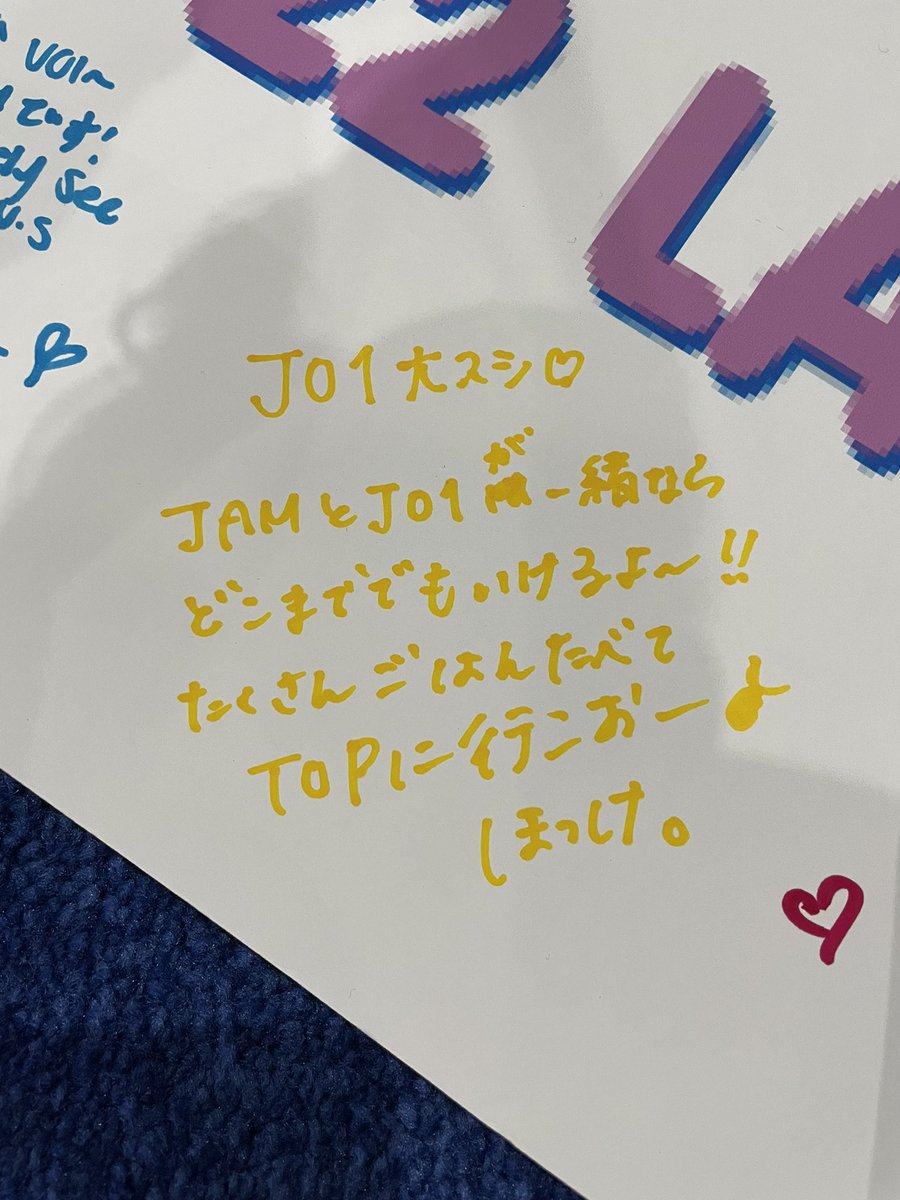 2 LA
VOI~
see
U.S
JO1 大スシ♡
JAMとJO1が一緒なら
どこまででもいけるよ〜!!
たくさんごはんたべて
TOPに行こおーよ
ほっけ。